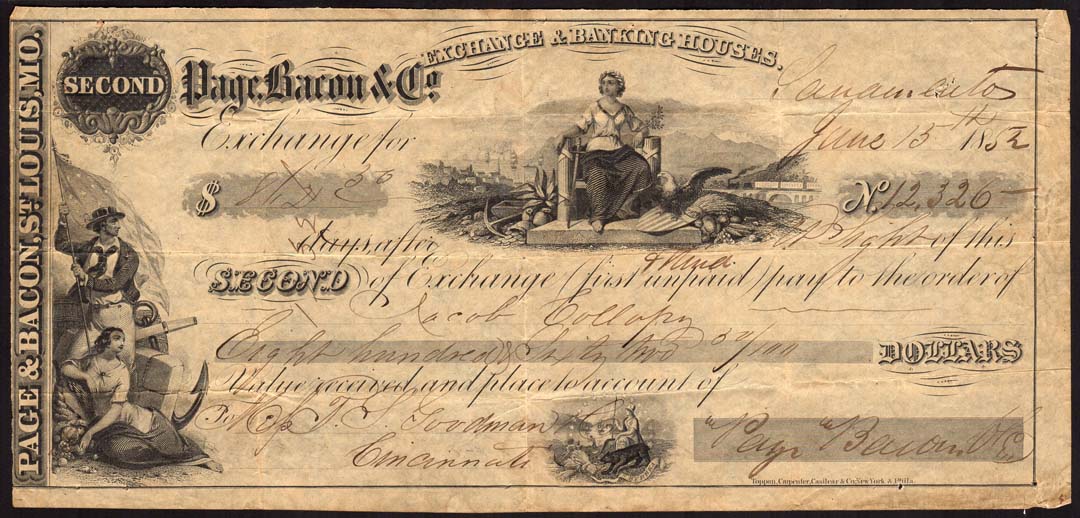 PAGE & BACON, ST. LOUIS, MO.
SECOND
Page, Bacon & Co.
EXCHANGE & BANKING HOUSES.
Sacramento
June 15th 1852
Exchange for
$ 862 30
No. 12,326
days after At Sight of this
SECOND of Exchange (first & third unpaid) pay to the order of
Jacob
Eight hundred & Sixty two 30/100 DOLLARS
Value received and place to account of
To T. S. Goodman & Co
Cincinnati
Page Bacon & Co
Toppan, Carpenter, Casilear & Co. New York & Phila.